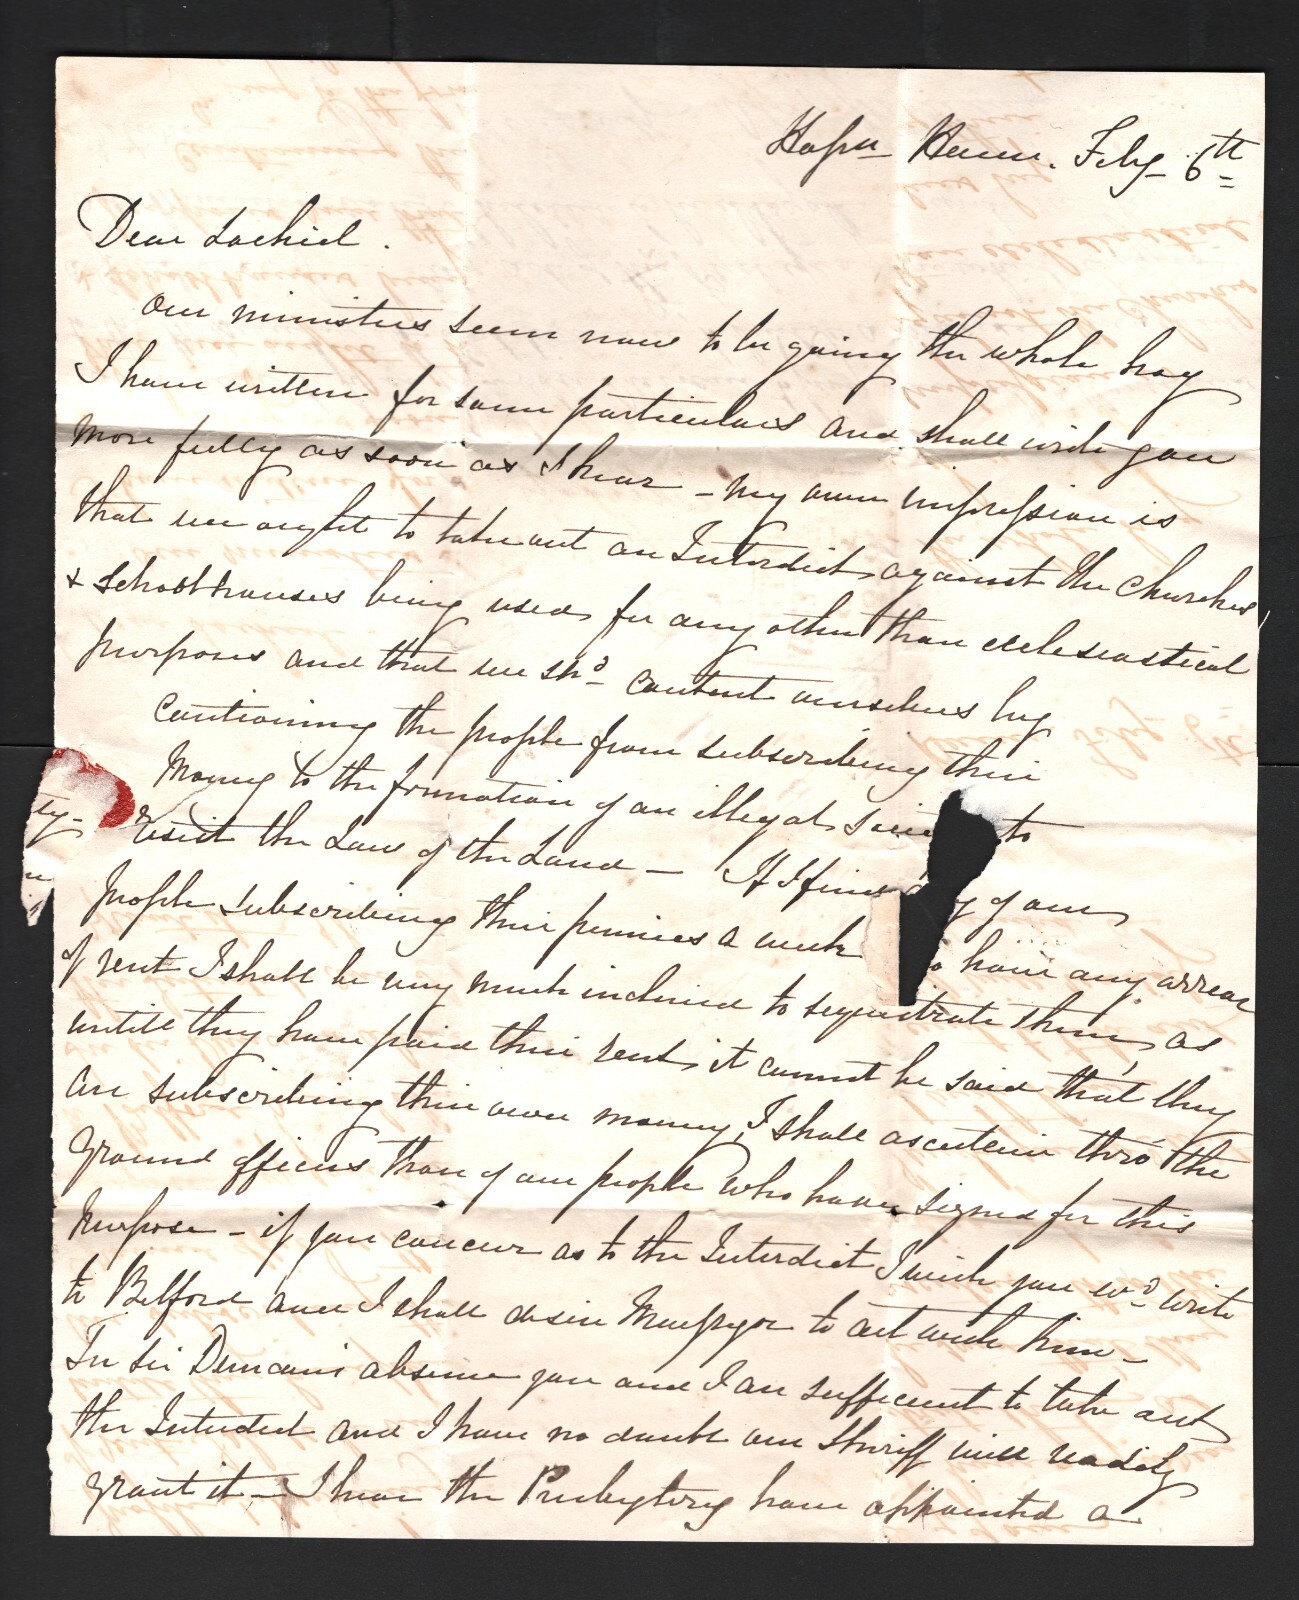 Feby 6th
Dear Lochiel.
Our ministers seem now to be going the whole hog
I have written for some particulars and shall write you
more fully as soon as I hear - my own impression is
that we ought to take out an Interdict against the Churches
& Schoolhouses being used for any other than ecclesiastical
purposes and that we shd content ourselves by
cautioning the people from subscribing their
money to the formation of an illegal to
resist the Law of the Land - If I find of our
people subscribing their pennies a week have any arrear
of rent I shall be very much inclined to sequestrate them, as
untill they have paid their rent, it cannot be said that they
are subscribing their own money, I shall ascertain thro' the
ground officers those of our people who have signed for this
purpose - if you concur as to the Interdict I wish you wd write
to Belford and I shall desire Macgregor to act with him -
In Sir Duncan's absence you and I are sufficient to take out
the Interdict and I have no doubt our Sheriff will readily
grant it - I hear the Presbytery have appointed a
ty-